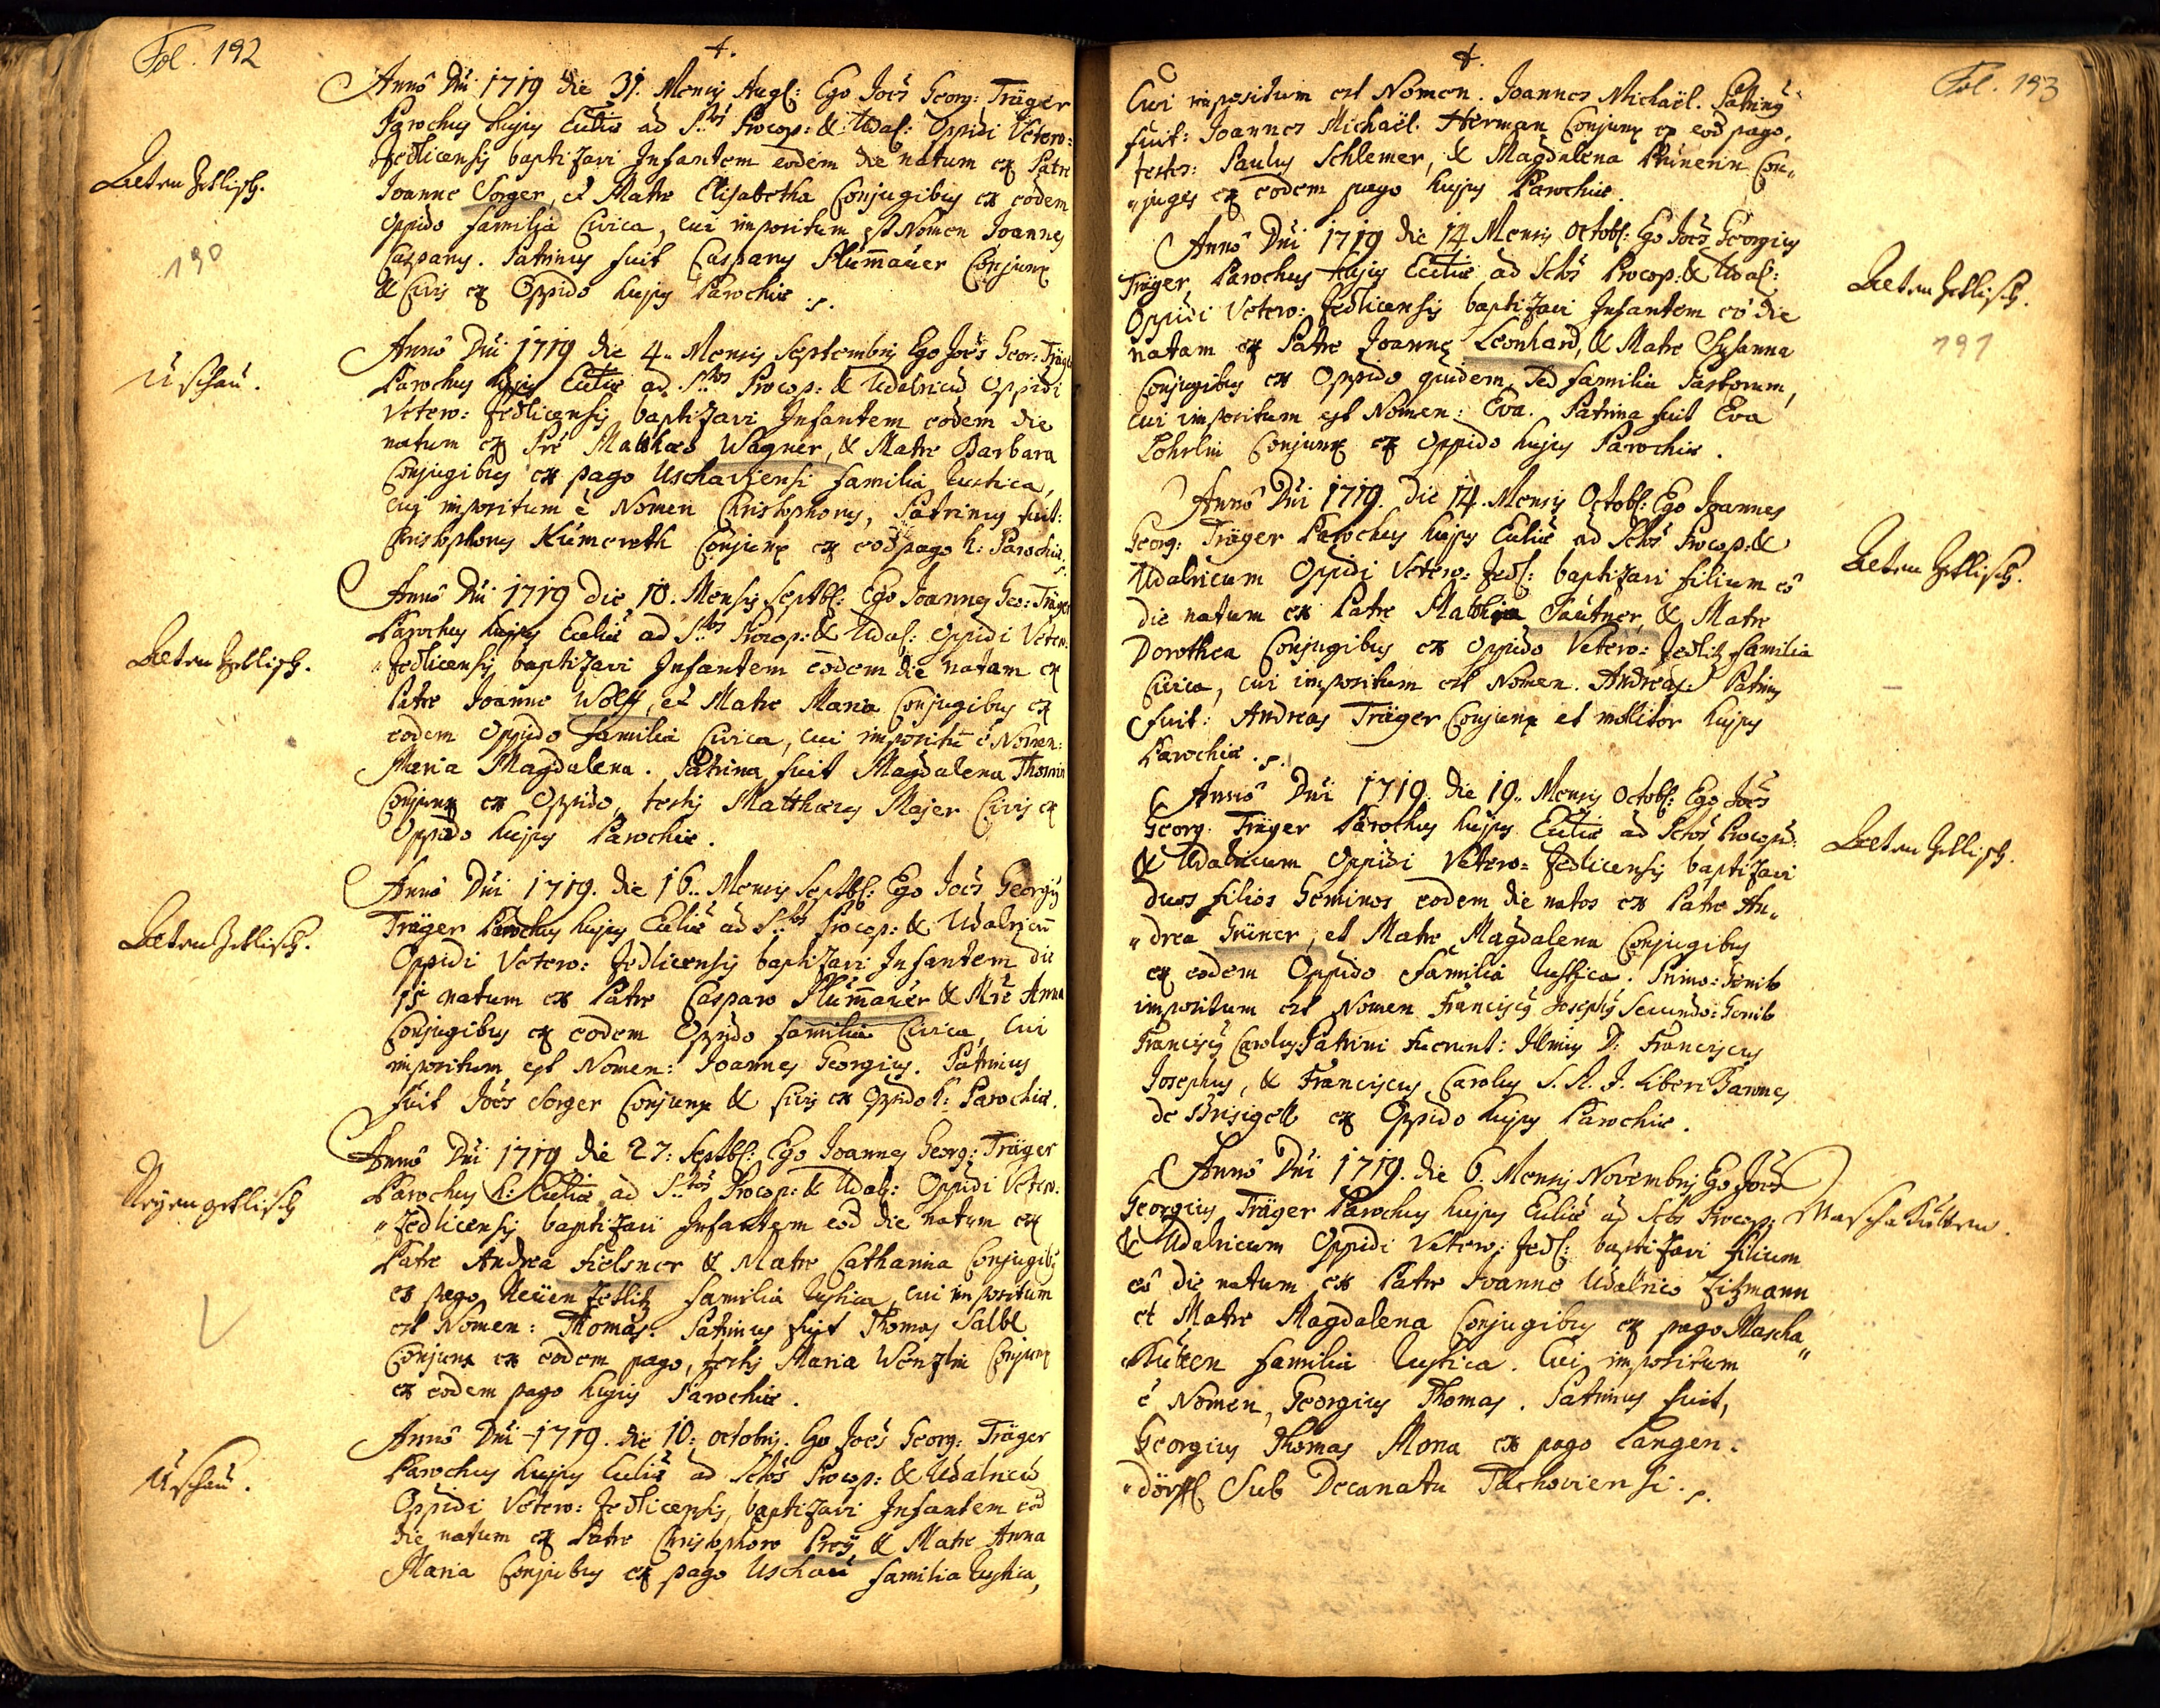 Fol. 192
Anno Dni 1719 die 31. Mensis Aug: Ego Joes Georg: Träger
Parochus hujus Eccliae ad Stos Procop: & Udal: Oppidi Vetero=
Alten Zetlisch.
Zedlicensis baptizavi Infantem eodem die natum ex Patre
Joanne Sorger, et Matre Elisabetha Conjugibus ex eodem
oppido familia Civica, cui impositum est Nomen Joannes
190
Casparus. Patrinus fuit Casparus Plummauer Conjunx
& Civis ex Oppido hujus Parochiae.
Anno Dni 1719 die 4. Mensis Septembris Ego Joes Geor: Träger
Uschau.
Parochus hujus Eccliae ad Stos Procop: & Udalricu Oppidi
Vetero: Zedlicensis baptizavi Infantem eodem die
natum ex Pre Matthaeo Wagner, & Matre Barbara
Conjugibus ex pago Uschaviensi familia rustica,
cui impositum e Nomen Christophorus, Patrinus fuit:
Christophorus Kümereth Conjunx ex eod pago h: Parochiae.
Anno Dni 1719 die 10. Mensis Septbl: Ego Joannes Geo: Träger
Parochus hujus Eccliae ad Stos Procop: & Udal: Oppidi Vetero:
Alten Zetlisch.
Zedlicensis baptizavi Infantem eodem die natam ex
Patre Joanne Wolff, et Matre Maria Conjugibus ex
eodem Oppido familia Civica, cui impositu e Nomen:
Maria Magdalena. Patrina fuit Magdalena Thomin
Conjunx ex Oppido, testis Matthaeus Majer Civis ex
Oppido hujus Parochiae.
Anno Dni 1719. die 16. Mensis Septbl: Ego Joes Georgius
Alten Zetlisch.
Träger Parochus hujus Eccliae ad Stos Procop: & Udalricu
Oppidi Vetero: Zedlicensis baptizavi Infantem die
15 natum ex Patre Casparo Plummauer & Mre Anna
Conjugibus ex eodem Oppido familia Civica, cui
impositum est Nomen: Joannes Georgius. Patrinus
fuit Joes Sorger Conjunx & Civis ex Oppido h: Parochiae.
Anno Dni 1719 die 27: Septbl: Ego Joannes Georg: Träger
Neyen zetlisch
Parochus h: Eccliae ad Stos Procop: & Udal: Oppidi Vetero:
Zedlicensis baptizavi Infantem eod die natum ex
Patre Andrea Fielsner & Matre Catharina Conjugibus
ex pago Neüen Zetlitz familia rustica, cui impositum
est Nomen: Thomas. Patrinus fuit Thomas Salbl
Conjunx ex eodem pago, testis Maria Wenzlin Conjunx
ex eodem pago hujus Parochiae.
Anno Dni 1719. die 10: octobris. Ego Joes Georg: Träger
Uschau.
Parochus hujus Eccliae ad Sctos Procop: & Udalricu
Oppidi Vetero: Zedlicensis, baptizavi Infantem eod
die natum ex Patre Christophoro Preÿ, & Matre Anna
Maria Conjubus ex pago Uschau familia rustica,
Fol. 193
Cui impositum est Nomen. Joannes Michaël. Patrinus
fuit: Joannes Michaël Herman Conjunx ex eod pago,
testes: Paulus Schlemer, & Magdalena Prünerin Con=
juges ex eodem pago hujus Parochiae.
Anno Dni 1719 die 14 Mensis Octobl: Ego Joes Georgius
Träger Parochus hujus Eccliae ad Sctos Procop: & Udal:
Alten Zetlisch.
Oppidi Vetero: Zedlicensis baptizavi Infantem eo die
191
natam ex Patre Joanne Leonhard, & Matre Susanna
Conjugibus ex Oppido quidem, sed familia Pastorum,
cui impositum est Nomen: Eva. Patrina fuit Eva
Lohrlin Conjunx ex Oppido hujus Parochiae.
Anno Dni 1719. die 14. Mensis Octobl: Ego Joannes
Georg: Träger Parochus hujus Eccliae ad Sctos Procop: &
Alten Zetlisch.
Udalricum Oppidi Vetero: Zedl: baptizavi filium eo
die natum ex Patre Mathia Pautner, & Matre
Dorothea Conjugibus ex Oppido Vetero: Zedlitz familia
Civica, cui impositum est Nomen. Andreas. Patrinus
fuit: Andreas Träger Conjunx et molitor hujus
Parochiae.
Anno Dni 1719. die 19. Mensis Octobl: Ego Joes
Georg. Träger Parochus hujus Eccliae ad Sctos Procop:
Alten Zetlisch.
& Udalricum Oppidi Vetero= Zedlicensis baptizavi
duos filios Geminos eodem die natos ex Patre An=
drea Grüner, et Matre Magdalena Conjugibus
ex eodem Oppido familia rustica. Primo: Genito
impositum est Nomen Franciscus Josephus Secundo: Genito
Franciscus Carolus. Patrini fuerunt: Illmus D: Franciscus
Josephus, & Franciscus Carolus S. R. I. Liberi Barones
de Brisigell ex Oppido hujus Parochiae.
Anno Dni 1719. die 6. Mensis Novembris Ego Joes
Georgius Träger Parochus hujus Eccliae ad Sctos Procop:
Mascha Kütten.
& Udalricum Oppidi Vetero: Zedl: baptizavi filium
eo die natum ex Patre Joanne Udalrico Zitzmann
et Matre Magdalena Conjugibus ex pago Mascha=
Kütten familia rustica. Cui impositum
e Nomen, Georgius Thomas. Patrinus fuit,
Georgius Thomas Mona ex pago Langen=
dörffl Sub Decanatu Tachoviensi.